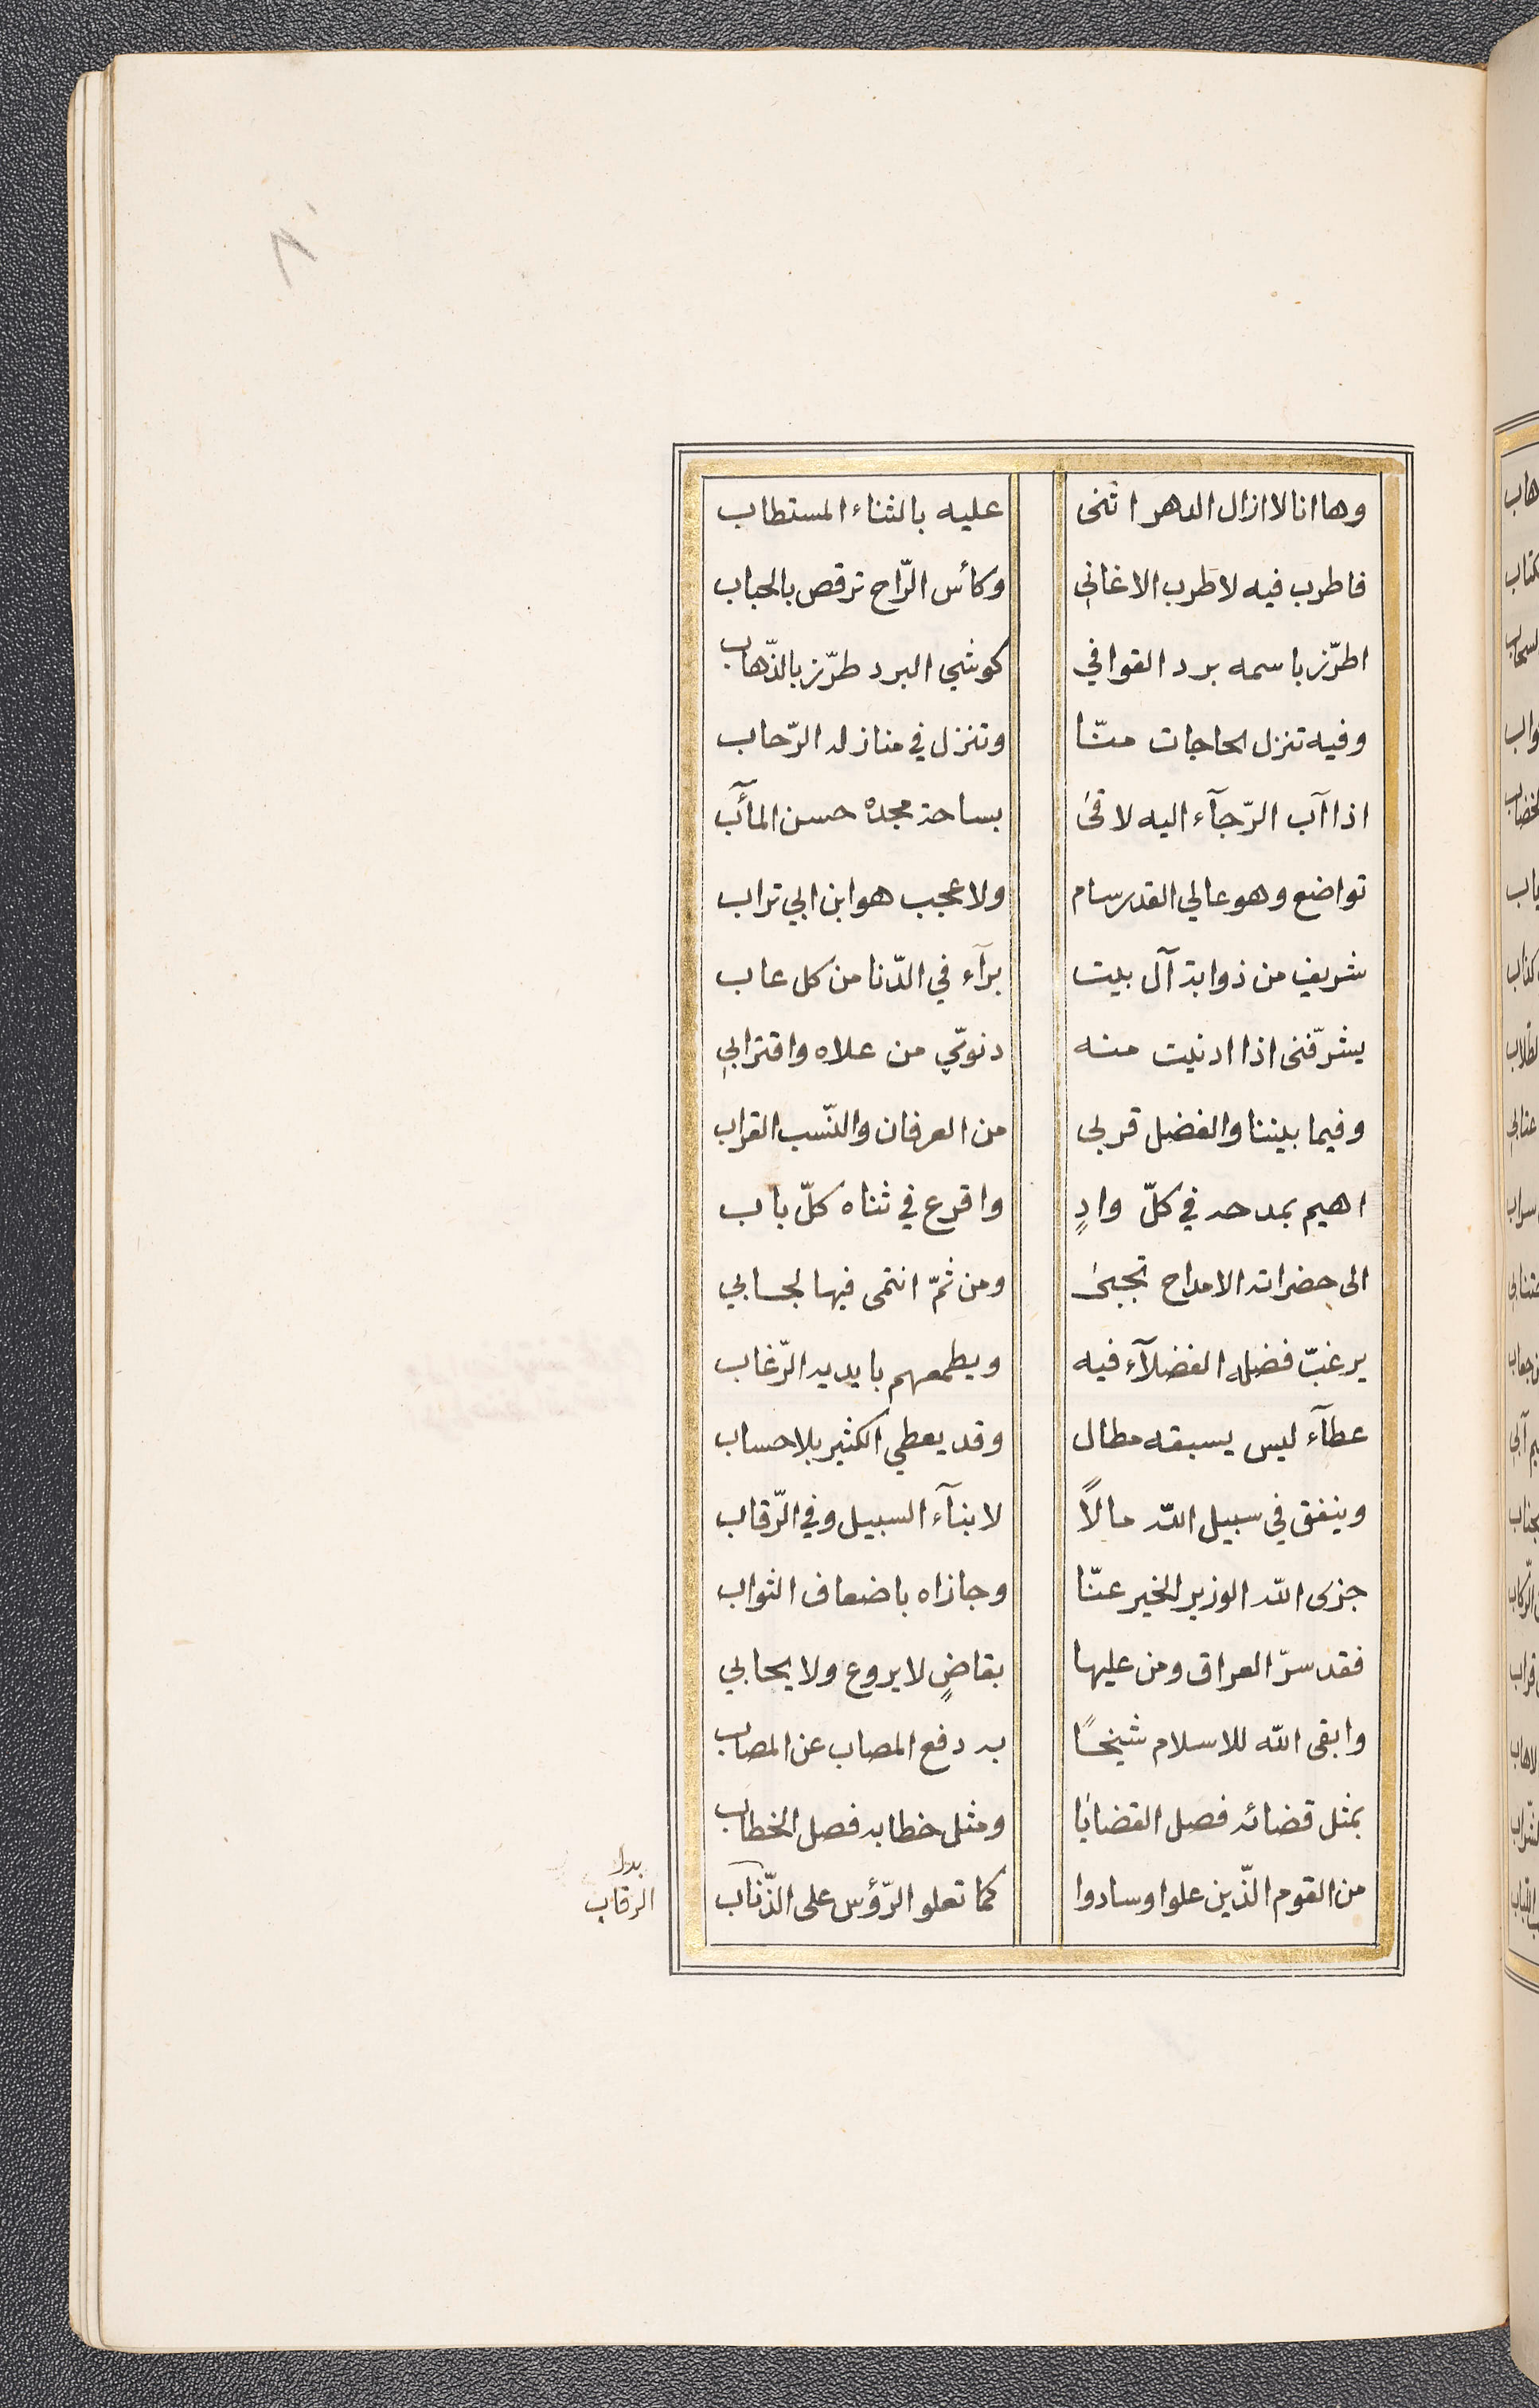 ٨
وها انا لا ازال الدهر اثنى عليه بالثناء المستطاب
فاطرب فيه لا طرب الاغاني وكأس الرّاح ترقص بالحباب
اطرّز باسمه برد القوافي كوشي البرد طرّز بالذّهاب
وفيه تنزل الحاجات منّا وتنزل في منازله الرّحاب
اذا آب الرّجآء اليه لاقى بساحة مجده حسن المآب
تواضع وهو عالي القدر سام ولا عجب هو ابن ابي تراب
شريف من ذوابة آل بيت برآء في الدّنا من كل عاب
يشرّفنى اذا ادنيت منه دنوّي من علاه واقترابي
وفيما بيننا والفضل قربى من العرفان والنّسب القراب
اهيم بمدحه في كلّ وادٍ واقرع في ثناه كلّ باب
الى حضراته الامداح تجبى ومن ثمّ انتمى فيها لجابي
يرغبّ فضله الفضلآء فيه ويطمعهم بايديه الرّغاب
عطآء ليس يسبقه مطال وقد يعطي الكثير بلا حساب
وينفق في سبيل الله مالاً لابنآء السبيل وفي الرّقاب
جزى الله الوزير الخير عنّا وجازاه باضعاف الثواب
فقد سرّ العراق ومن عليها بقاضٍ لا يروع ولا يحابي
وابقى الله للاسلام شيخًا به دفع المصاب عن المصاب
بمثل قضائه فصل القضايا ومثل خطابه فصل الخطاب
من القوم الّذين علوا وسادوا كما تعلو الرّؤس على الذّناب
بدل
الرقاب